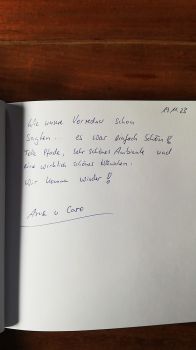 19.11.23
Wie unsere Vorredner schon
sagten... es war einfach schön!
Tolle Pferde, sehr schönes Ambiente und
eine wirklich schönes
Wir kommen wieder!
Arne u Caro